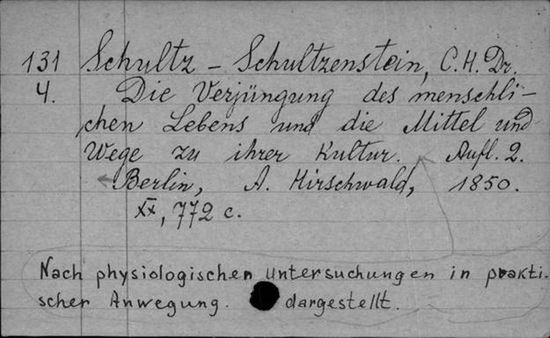 131 Schultz - Schultzenstein, C. H. Dr.
4. Die Verjüngung des menschli-
chen Lebens und die Mittel und
Wege zu ihrer Kultur. Aufl. 2.
Berlin, A. Hirschwald, 1850.
XX, 772 c.
Nach physiologischen untersuchungen in prakti-
scher Anwegung. dargestellt.